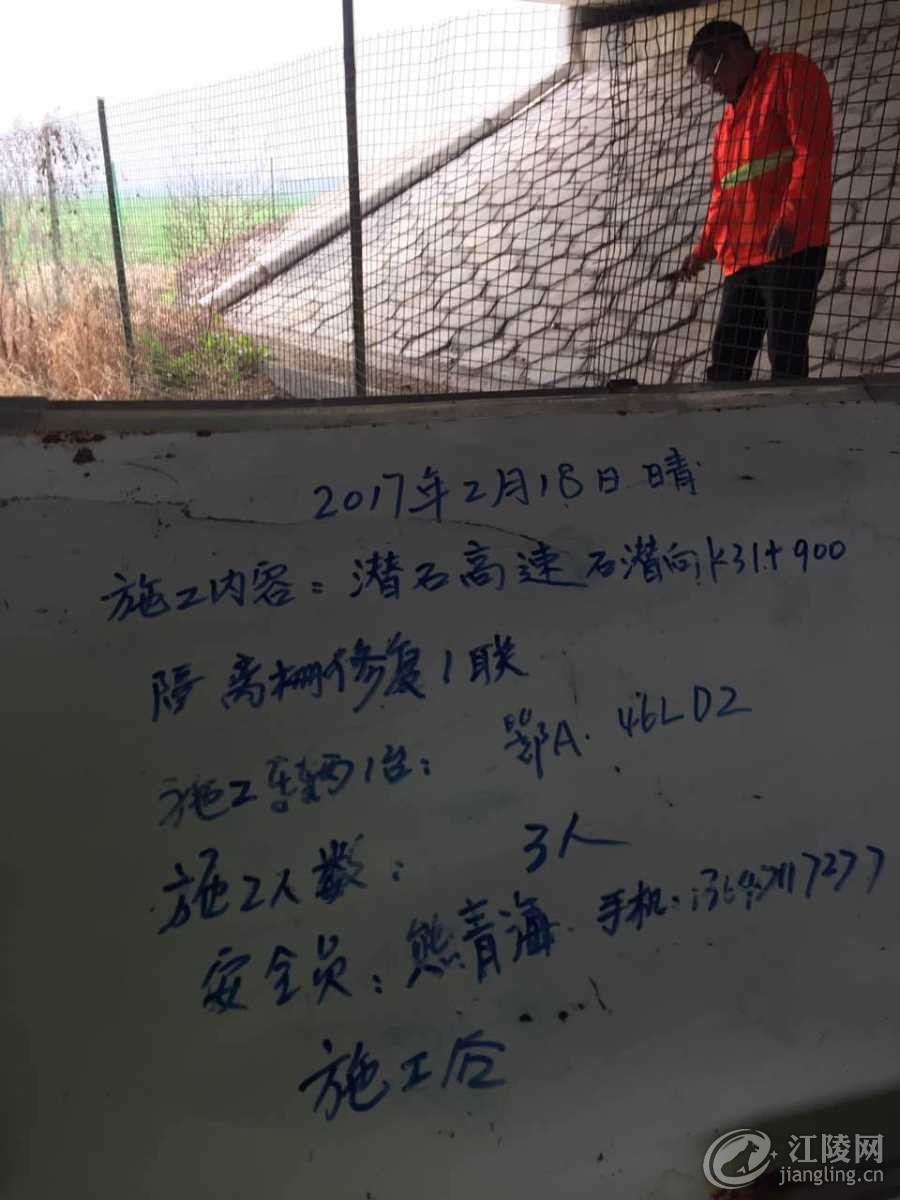 2017年2月18日 晴
施工内容：潜石高速石潜向K31+900
隔离栅修复1联
施工车辆1台： 鄂A·46LD2
施工人数： 3人
安全员：熊青海 手机：
施工后
江陵网
jiangling.cn